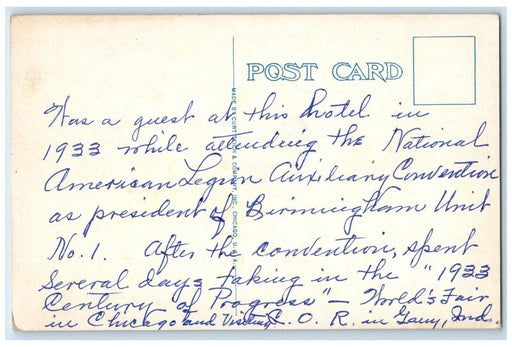 POST CARD
MADE BY CURT TEICH & COMPANY, INC., CHICAGO, U.S.A.
Was a guest at this hotel in
1933 while attending the National
American Legion Auxiliary Convention
as president of Birmingham Unit
No. 1. After the convention, spent
several days taking in the "1933
Century of Progress" – World's Fair
in Chicago and visiting C. O. R. in Gary, Ind.